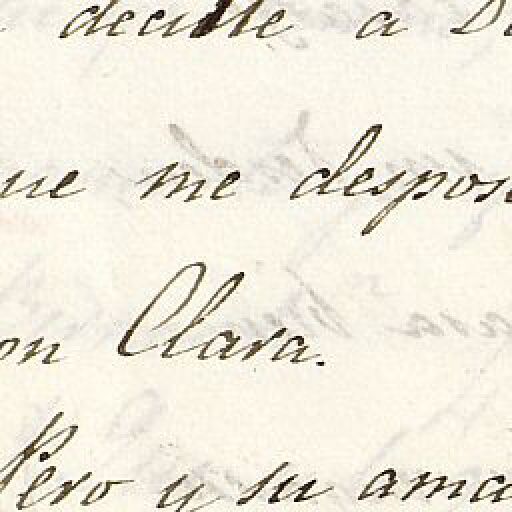 decirle a D
ue me despos
on Clara.
Pero y su ama